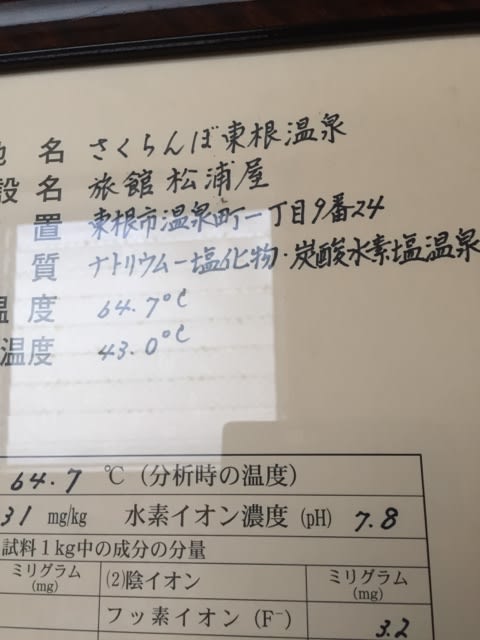 地名 さくらんぼ東根温泉
設名 旅館 松浦屋
置 東根市温泉町一丁目9番24
質 ナトリウム－塩化物・炭酸水素塩温泉
温度 64.7℃
温度 43.0℃
64.7 ℃ (分析時の温度)
31 mg/kg 水素イオン濃度 (pH) 7.8
試料1kg中の成分の分量
ミリグラム (2)陰イオン ミリグラム
(mg) (mg)
フッ素イオン (F⁻) 3.2